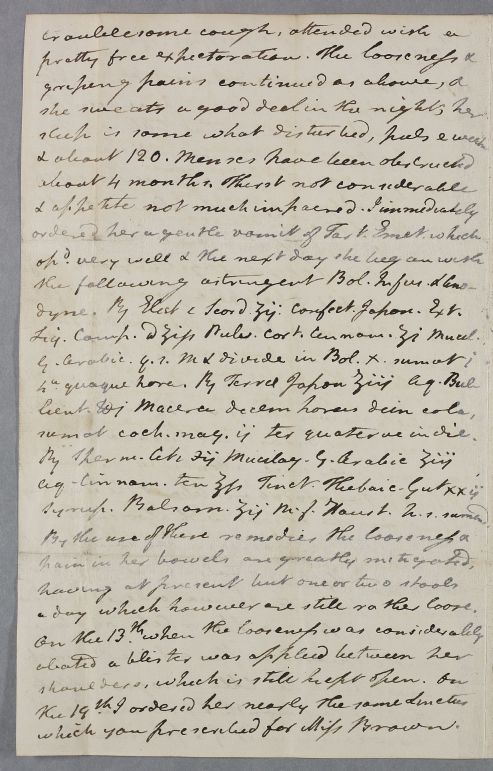 troublesome cough, attended with a
pretty free expectoration. The looseness &
griping pains continued as above, &
she sweats a good deal in the night, her
sleep is some what disturbed, pulse weak
& about 120. Menses have been obstructed
about 4 months. Thirst not considerable
& appetite not much impaired. I immediately
ordered her a gentle vomit of Tart. Emet. which
opd. very well & the next day she began with
the following astringent Bol. Infus. & Ano-
dyne. Rx Elect e Scord ʒij. Confect Japon. Ext.
Lig. Camp. a ʒiss Pulv. Cort. Cinnam. ʒi Mucil.
G. Arabic. q. s. M & divide in Bol. X. sumat j
4ta quaque hora. Rx Terræ Japon ʒiij Aq. Bul
lient. ℔j Macera decem horas dein cola,
sumat coch. mag. ij ter quaterve in die.
Rx Sperm. Ceti ʒij Mucilag. G. Arabic ʒiij
Aq. Cinnam. ten ℥ss Tinct. Thebaic. Gut xxij
Syrup. Balsam. ʒij M. f. Haust. h. s. sumend.
By the use of these remedies the looseness &
pain in her bowels are greatly mitigated,
having at present but one or two stools
a day which however are still rather loose.
On the 13th when the looseness was considerably
abated a blister was applied between her
shoulders, which is still kept open. On
the 19th I ordered her nearly the same Linctus
which you prescribed for Miss Brown.